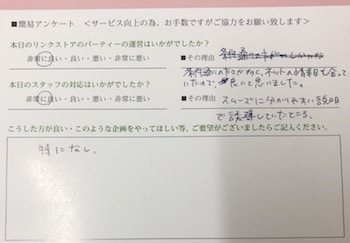 ■簡易アンケート ＜サービス向上の為、お手数ですがご協力をお願い致します＞
本日のリンクストアのパーティーの運営はいかがでしたか?
非常に良い・良い・悪い・非常に悪い
■その理由
条件通りの
ネットの
いたので、良いと思いました。
本日のスタッフの対応はいかがでしたか?
非常に良い・良い・悪い・非常に悪い
■その理由 スムーズに分かりやすい説明
で誘導していたところ。
こうした方が良い・このような企画をやってほしい等、ご要望がございましたらご記入ください。
特になし。